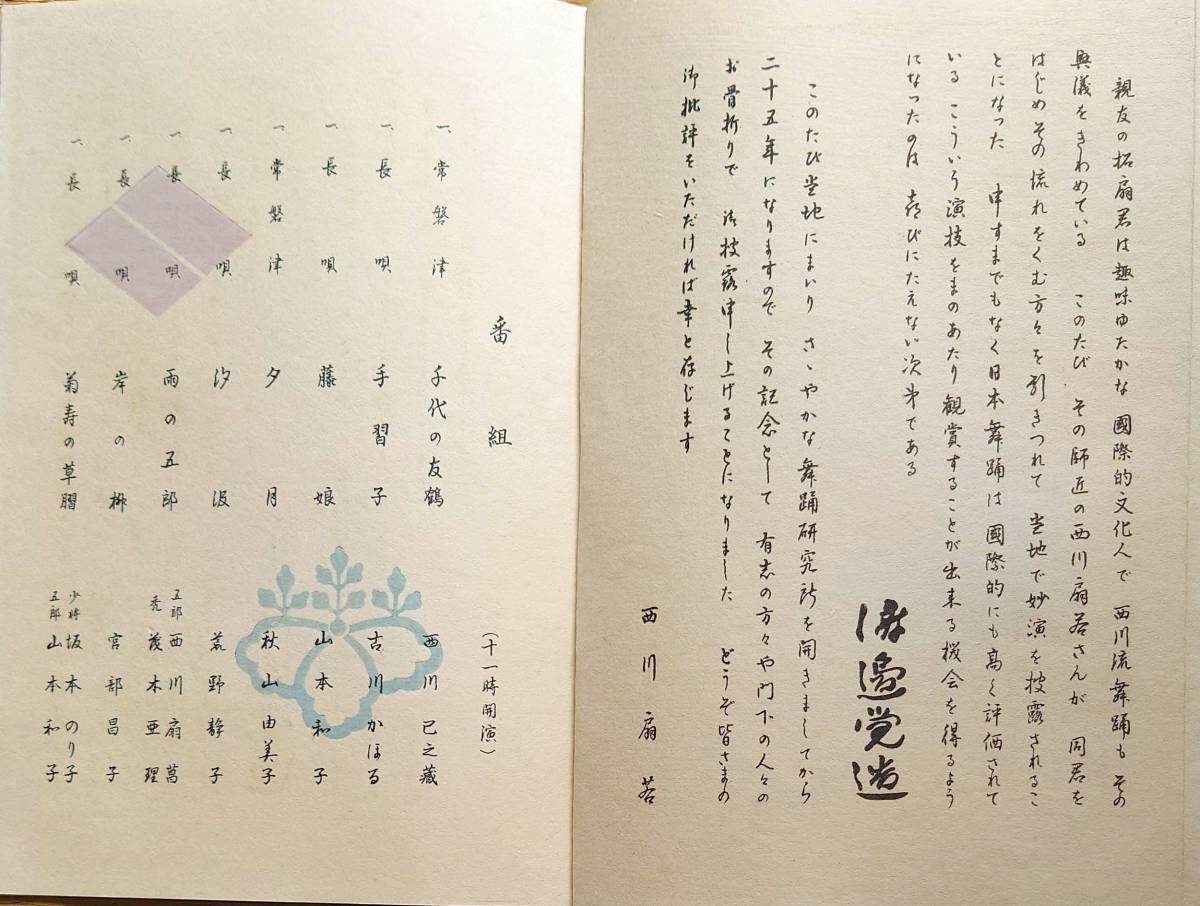 親友の拓扇君は趣味ゆたかな國際的文化人で 西川流舞踊も その
奥儀をきわめている このたび その師匠の西川扇若さんが 同君を
はじめその流れをくむ方々を引きつれて 当地で妙演を披露されるこ
とになった 申すまでもなく日本舞踊は國際的にも高く評価されて
いる こういう演技をまのあたり観賞することが出来る機会を得るよう
になったのは 喜びにたえない次第である
渡邉覚造
このたび当地にまいり さゝやかな舞踊研究所を開きましてから
二十五年になりますので その記念として 有志の方々や門下の人々の
お骨折りで 御披露申し上げることになりました どうぞ皆さまの
御批評をいただければ幸と存じます
西川扇若
番組
(十一時開演)
一、常磐津 千代の友鶴 西川巳之蔵
一、長唄 手習子 古川かほる
一、長唄 藤娘 山本和子
一、常磐津 夕月 秋山由美子
一、長唄 汐汲 荒野静子
一、長唄 雨の五郎 五郎 西川扇菖
禿 茂木亜理
一、長唄 岸の柳 宮部昌子
一、長唄 菊寿の草摺 少将 坂本のり子
五郎 山本和子